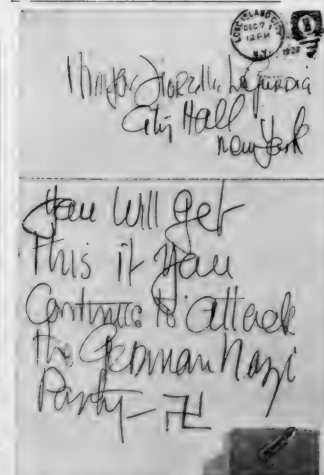 LONG ISLAND CITY
DEC 7
12 PM
N.Y.
1938
Mayor Fiorello LaGuardia
City Hall
New York
You will get
this if you
Continue to attack
the German Nazi
Party –